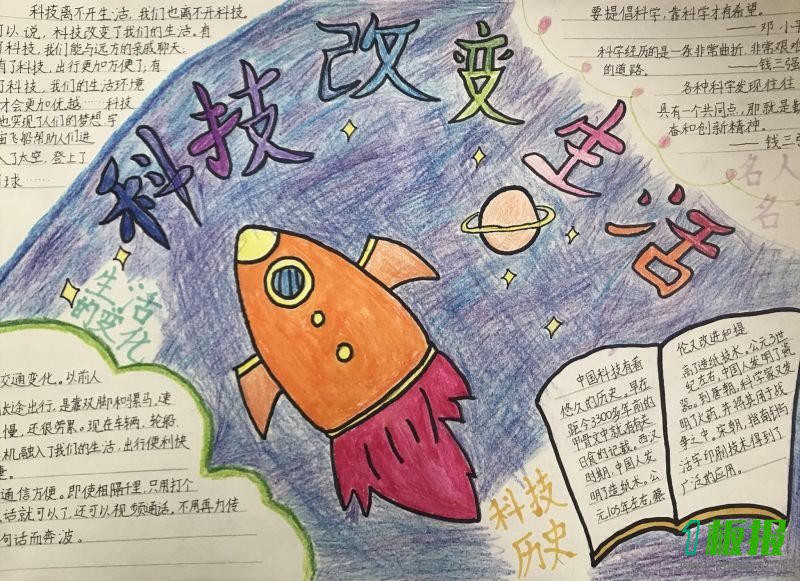 科技离不开生活，我们也离不开科技。
可以说，科技改变了我们的生活。有
了科技，我们能与远方的亲戚聊天；
有了科技，出行更加方便了；有
了科技，我们的生活环境
才会更加优越……科技
也实现了人们的梦想，宇
宙飞船帮助人们进
入了太空，登上了
月球……
科技改变生活
要提倡科学，靠科学才有希望。
——邓小平
科学经历的是一条非常曲折、非常艰难
的道路。——钱三强
各种科学发现往往
具有一个共同点，那就是勤
奋和创新精神。
——钱三强
名人
名
生活
的变化
交通变化。以前人
长途出行，是靠双脚和骡马，速
慢，还很劳累。现在车辆、轮船、
机融入了我们的生活，出行便利快
捷。
通信方便。即使相隔千里，只用打个
电话就可以了，还可以视频通话。不用再为传
句话而奔波。
科技
历史
中国科技有着
悠久的历史。早在
距今3300多年前的
甲骨文中就有有关
日食的记载。西汉
时期，中国人发
明了造纸术。公
元105年左右，蔡
伦又改进和提
高了造纸技术。公元3世
纪左右，中国人发明了瓷
器。到唐朝，科学家又发
明了火药，并将其用于战
争之中。宋朝，指南针构
活字印刷技术得到了
广泛的应用。
1板报